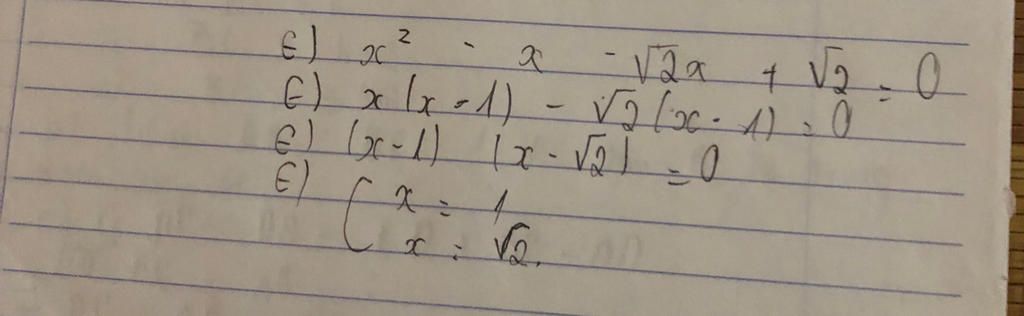 ⇔ x² - x - √2x + √2 = 0
⇔ x(x - 1) - √2(x - 1) = 0
⇔ (x - 1) (x - √2) = 0
⇔ [ x = 1
x = √2.